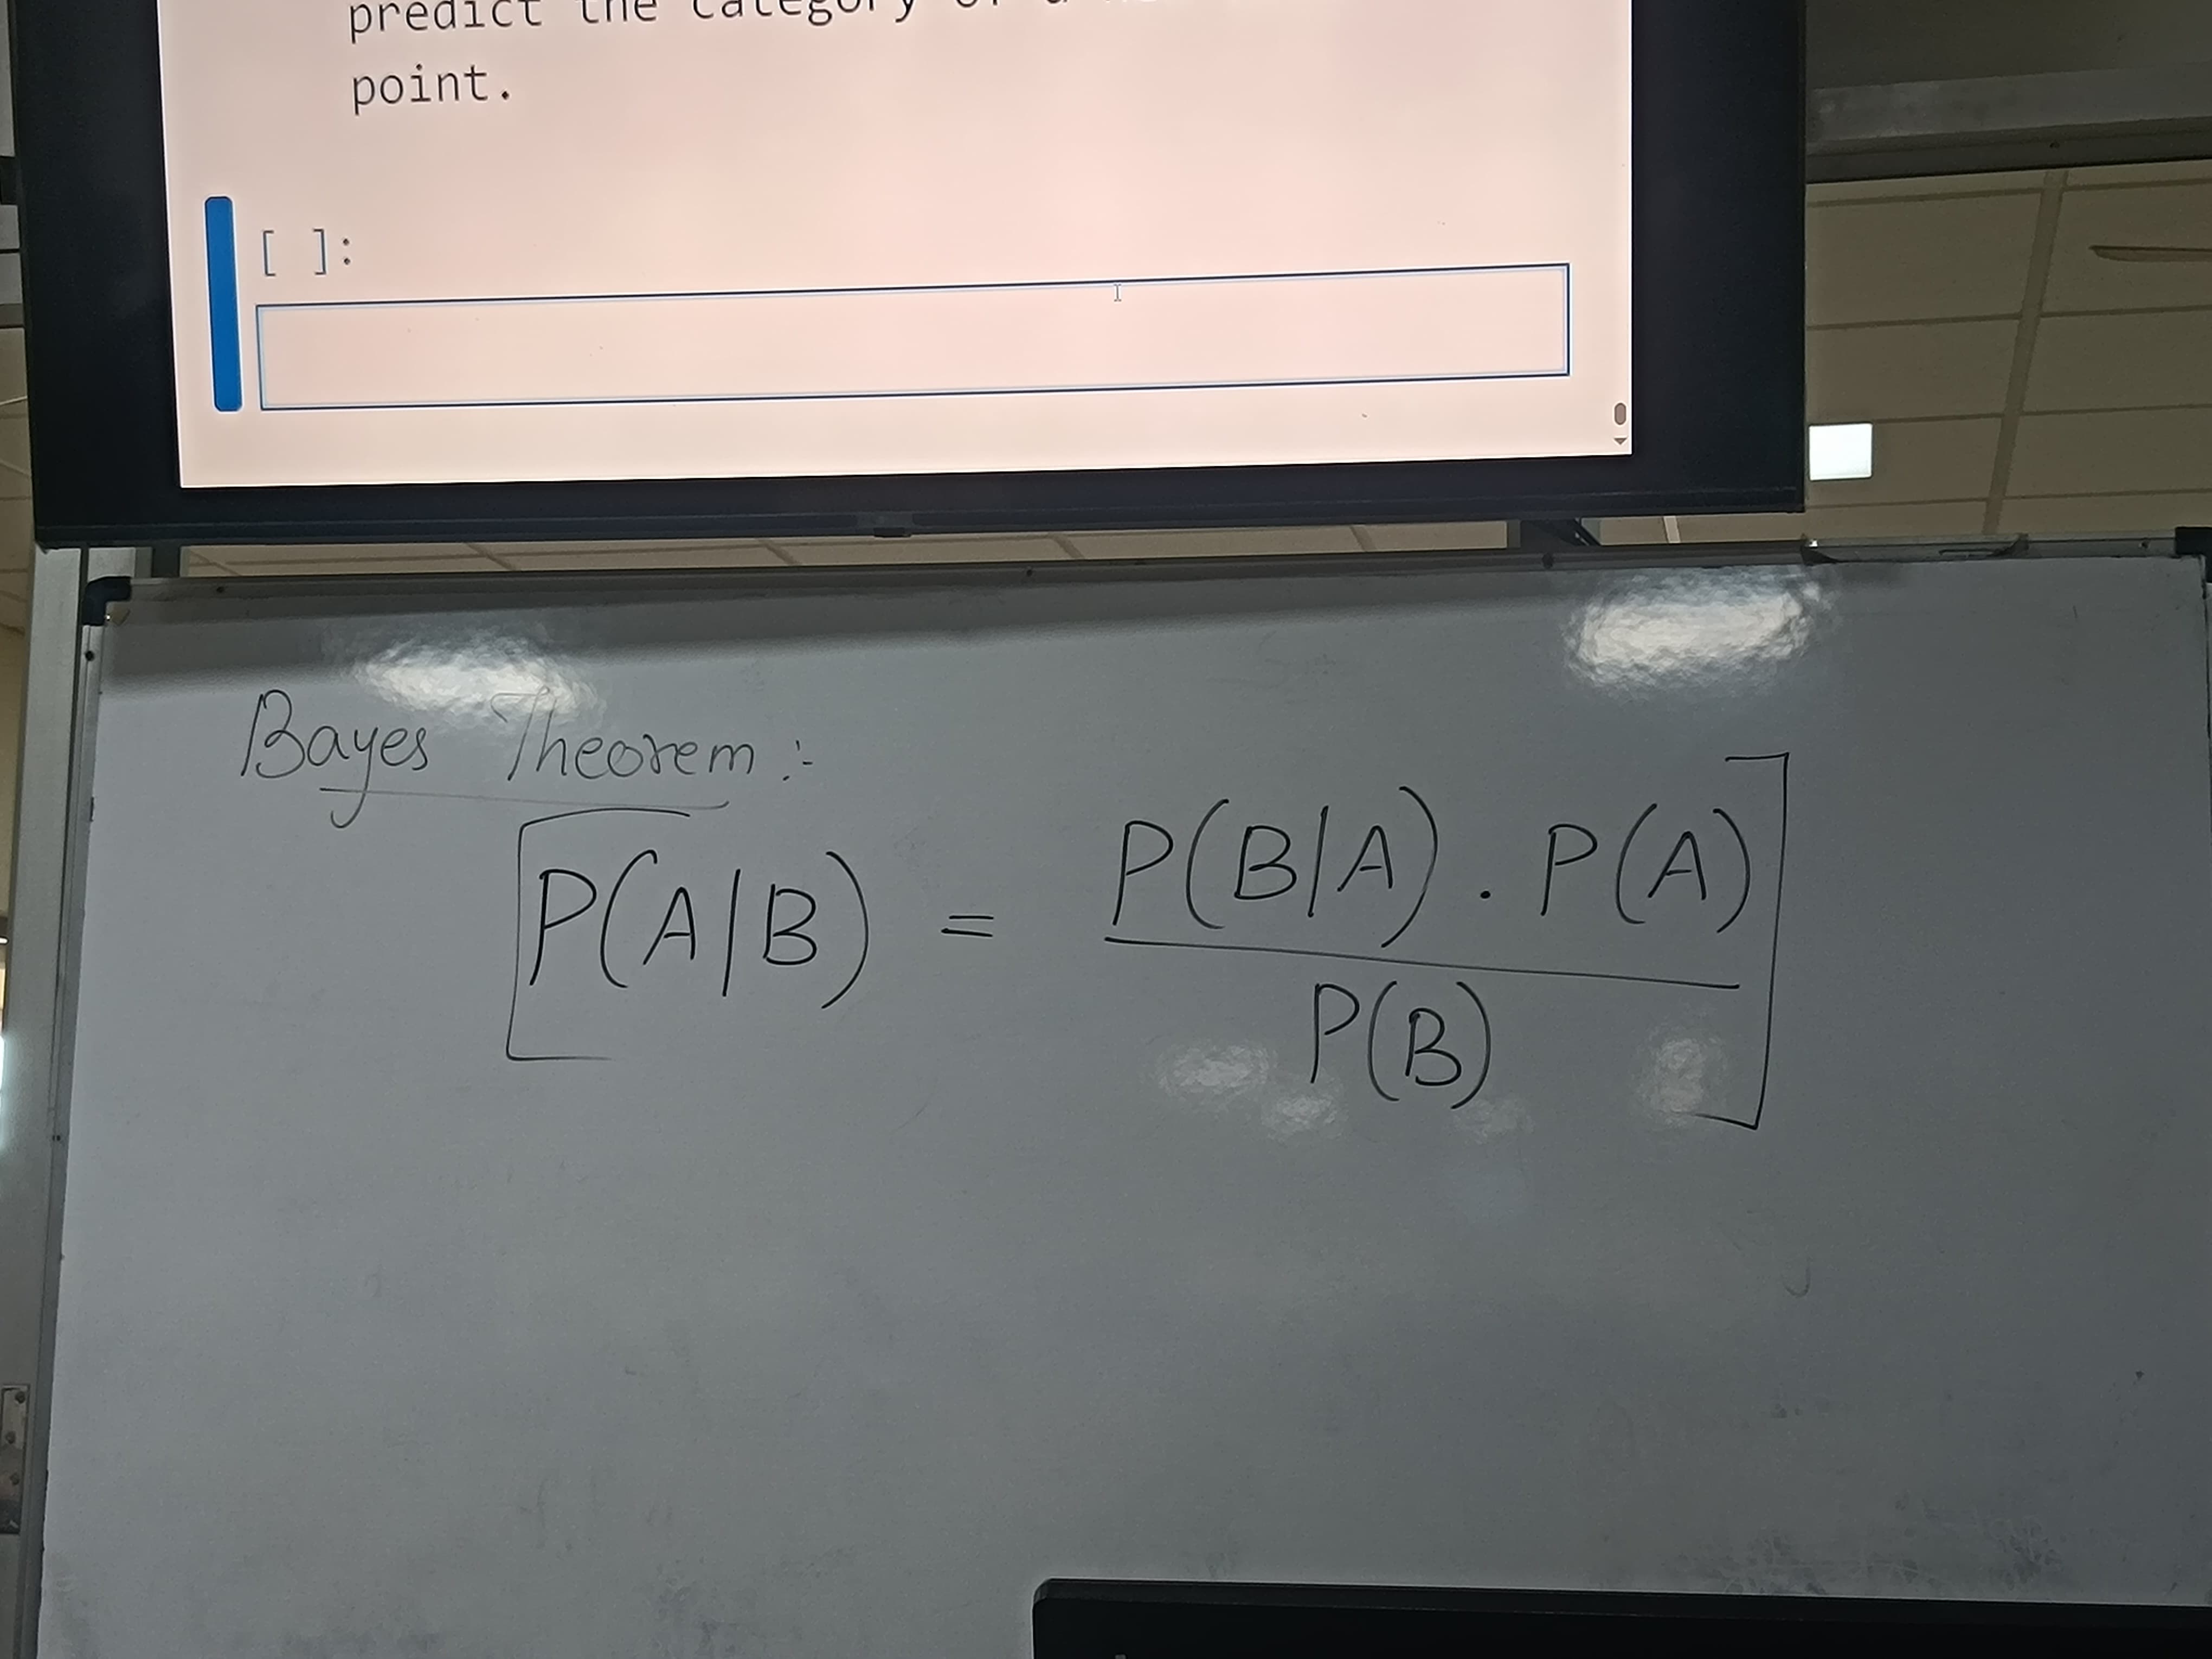 predict the category of a
point.
[ ]:
Bayes Theorem :-
P(A|B) = P(B|A) . P(A)
P(B)